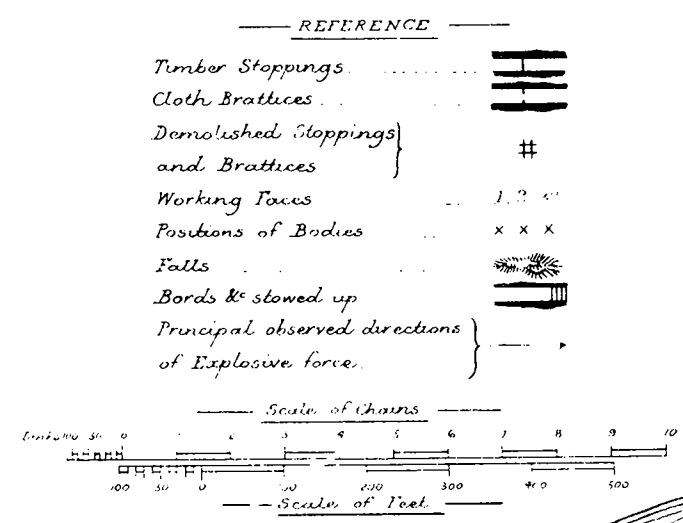 REFERENCE
Timber Stoppings
Cloth Brattices
Demolished Stoppings
and Brattices
Working Faces 1, 2 &c
Positions of Bodies × × ×
Falls
Bords &c stowed up
Principal observed directions
of Explosive force.
Scale of Chains
Links 100 50 0 1 2 3 4 5 6 7 8 9 10
100 50 0 100 200 300 400 500
Scale of Feet